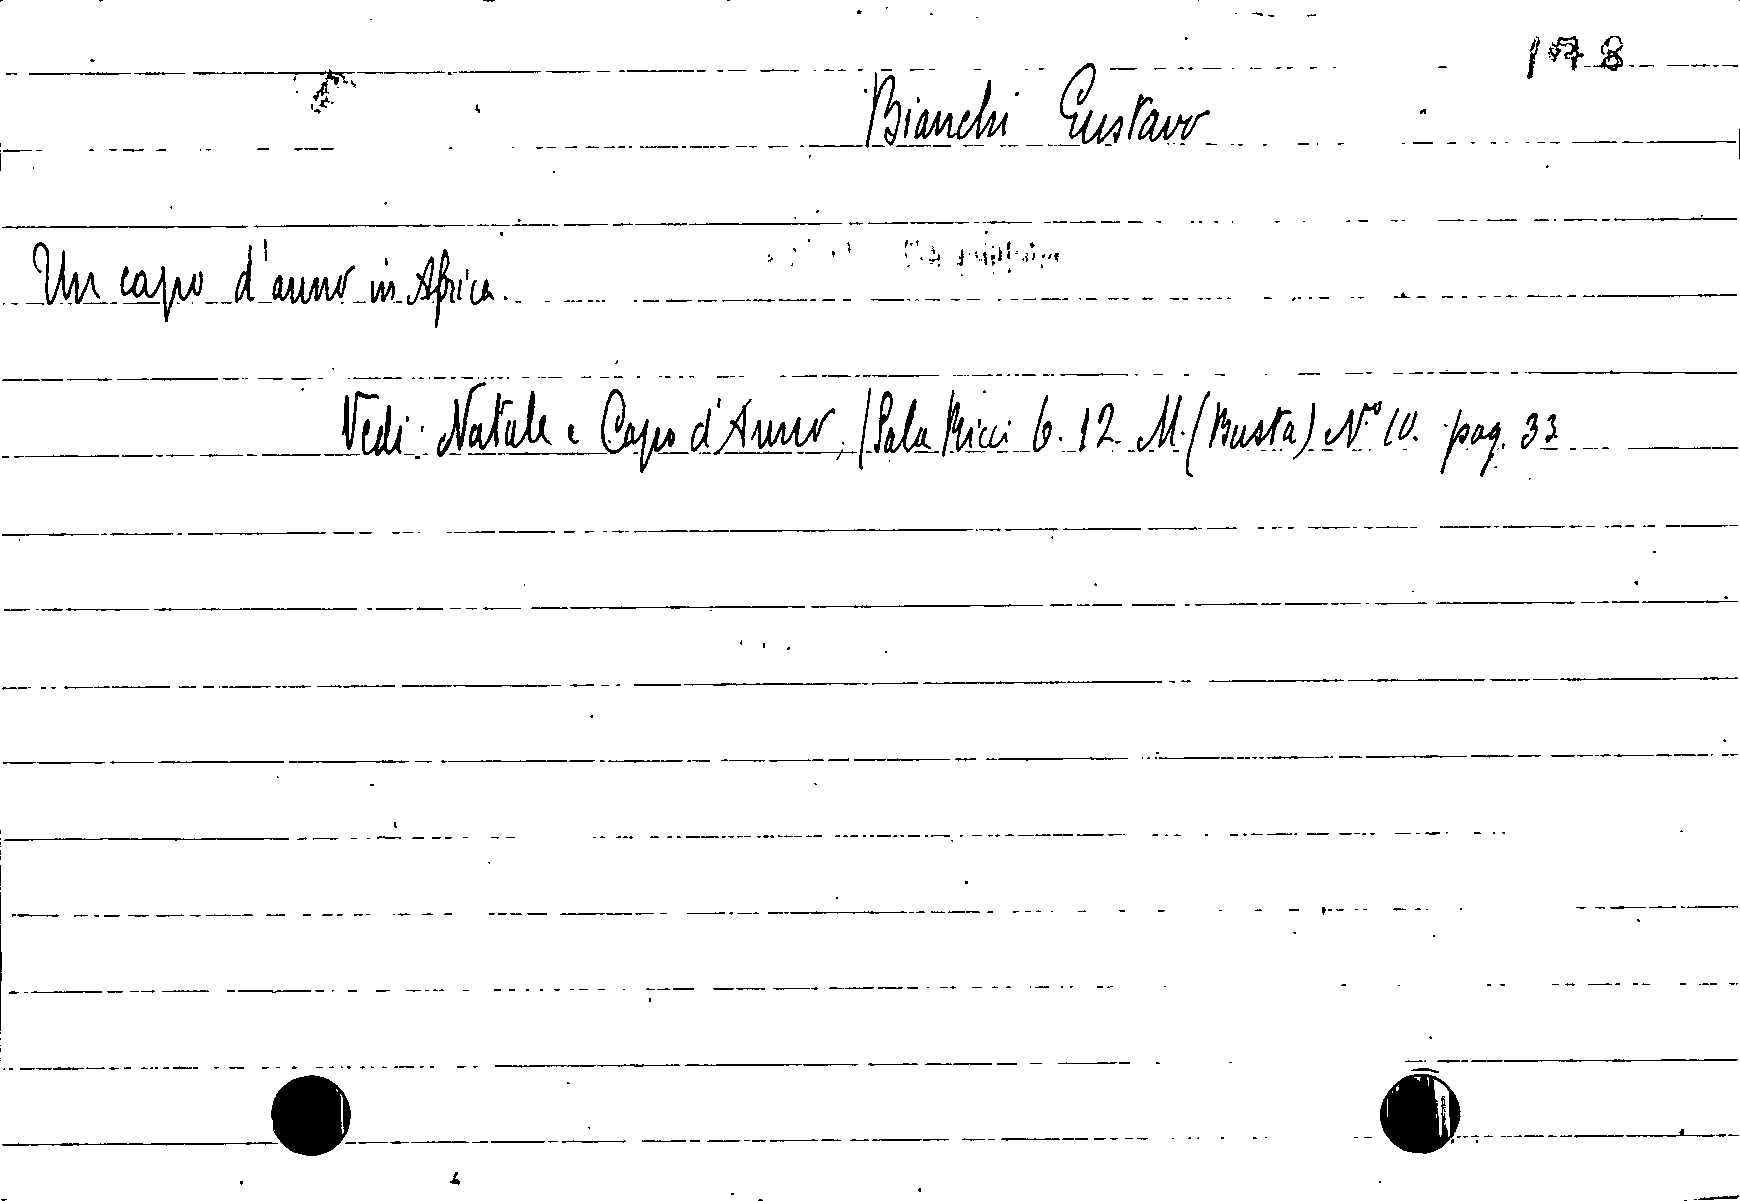 178
Bianchi Gustavo
Un capo d'anno in Africa.
Vedi: Natale e Capo d'Anno, (Sala Ricci 6. 12. M. (Busta) N.º 10. pag. 33